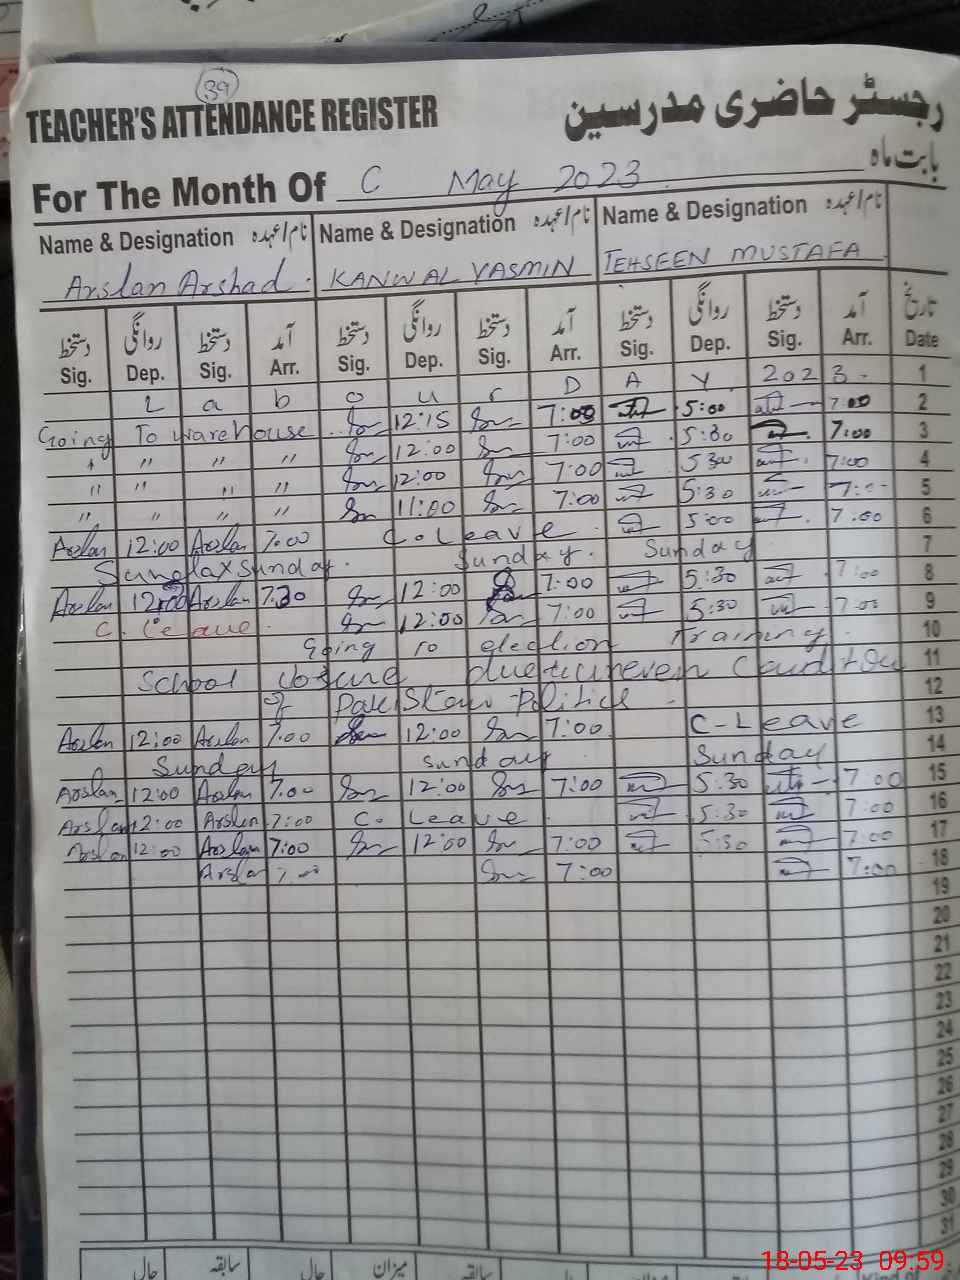 39
TEACHER'S ATTENDANCE REGISTER رجسٹر حاضری مدرسین
For The Month Of C May 2023 بابت ماہ
Name & Designation نام/عہدہ Name & Designation نام/عہدہ Name & Designation نام/عہدہ
Arslan Arshad. KANWAL YASMIN TEHSEEN MUSTAFA
دستخط روانگی دستخط آمد دستخط روانگی دستخط آمد دستخط روانگی دستخط آمد تاریخ
Sig. Dep. Sig. Arr. Sig. Dep. Sig. Arr. Sig. Dep. Sig. Arr. Date
L a b o u r D A Y 2023. 1
Going To warehouse 12:15 7:00 5:00 7:00 2
" " " " 12:00 7:00 5:30 7:00 3
" " " " 12:00 7:00 5 30 7:00 4
" " " " 11:00 7:00 5:30 7:00 5
Arslan 12:00 Arslan 7.00 C. Leave 5:00 7.00 6
Sunday. Sunday. Sunday 7
Arslan 12:00 Arslan 7.30 12:00 7:00 5:30 7:00 8
C. Leave. 12:00 7:00 5:30 7:00 9
Going to election Training. 10
School due 11
of Pakistan Politics 12
Arslan 12:00 Arslan 7.00 12:00 7:00 C-Leave 13
Sunday sunday Sunday 14
Arslan 12:00 Arslan 7.00 12:00 7:00 5.30 7:00 15
Arslan 12:00 Arslan 7:00 C. Leave 5:30 7:00 16
Arslan 12:00 Arslan 7:00 12:00 7:00 5:30 7:00 17
Arslan 7:00 7:00 7:00 18
19
20
21
22
23
24
25
26
27
28
29
30
31
حال سابقہ حال میزان سابقہ
18-05-23 09:59